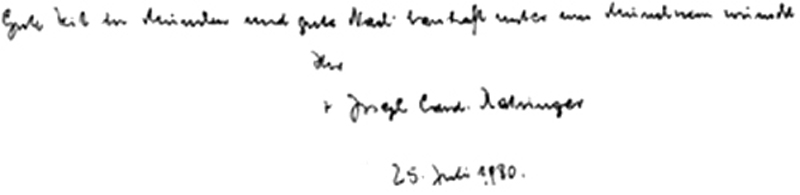 Gute Zeit in München und gute Nachbarschaft unter uns Münchnern wünscht
Ihr
+ Joseph Card. Ratzinger
25. Juli 1980.